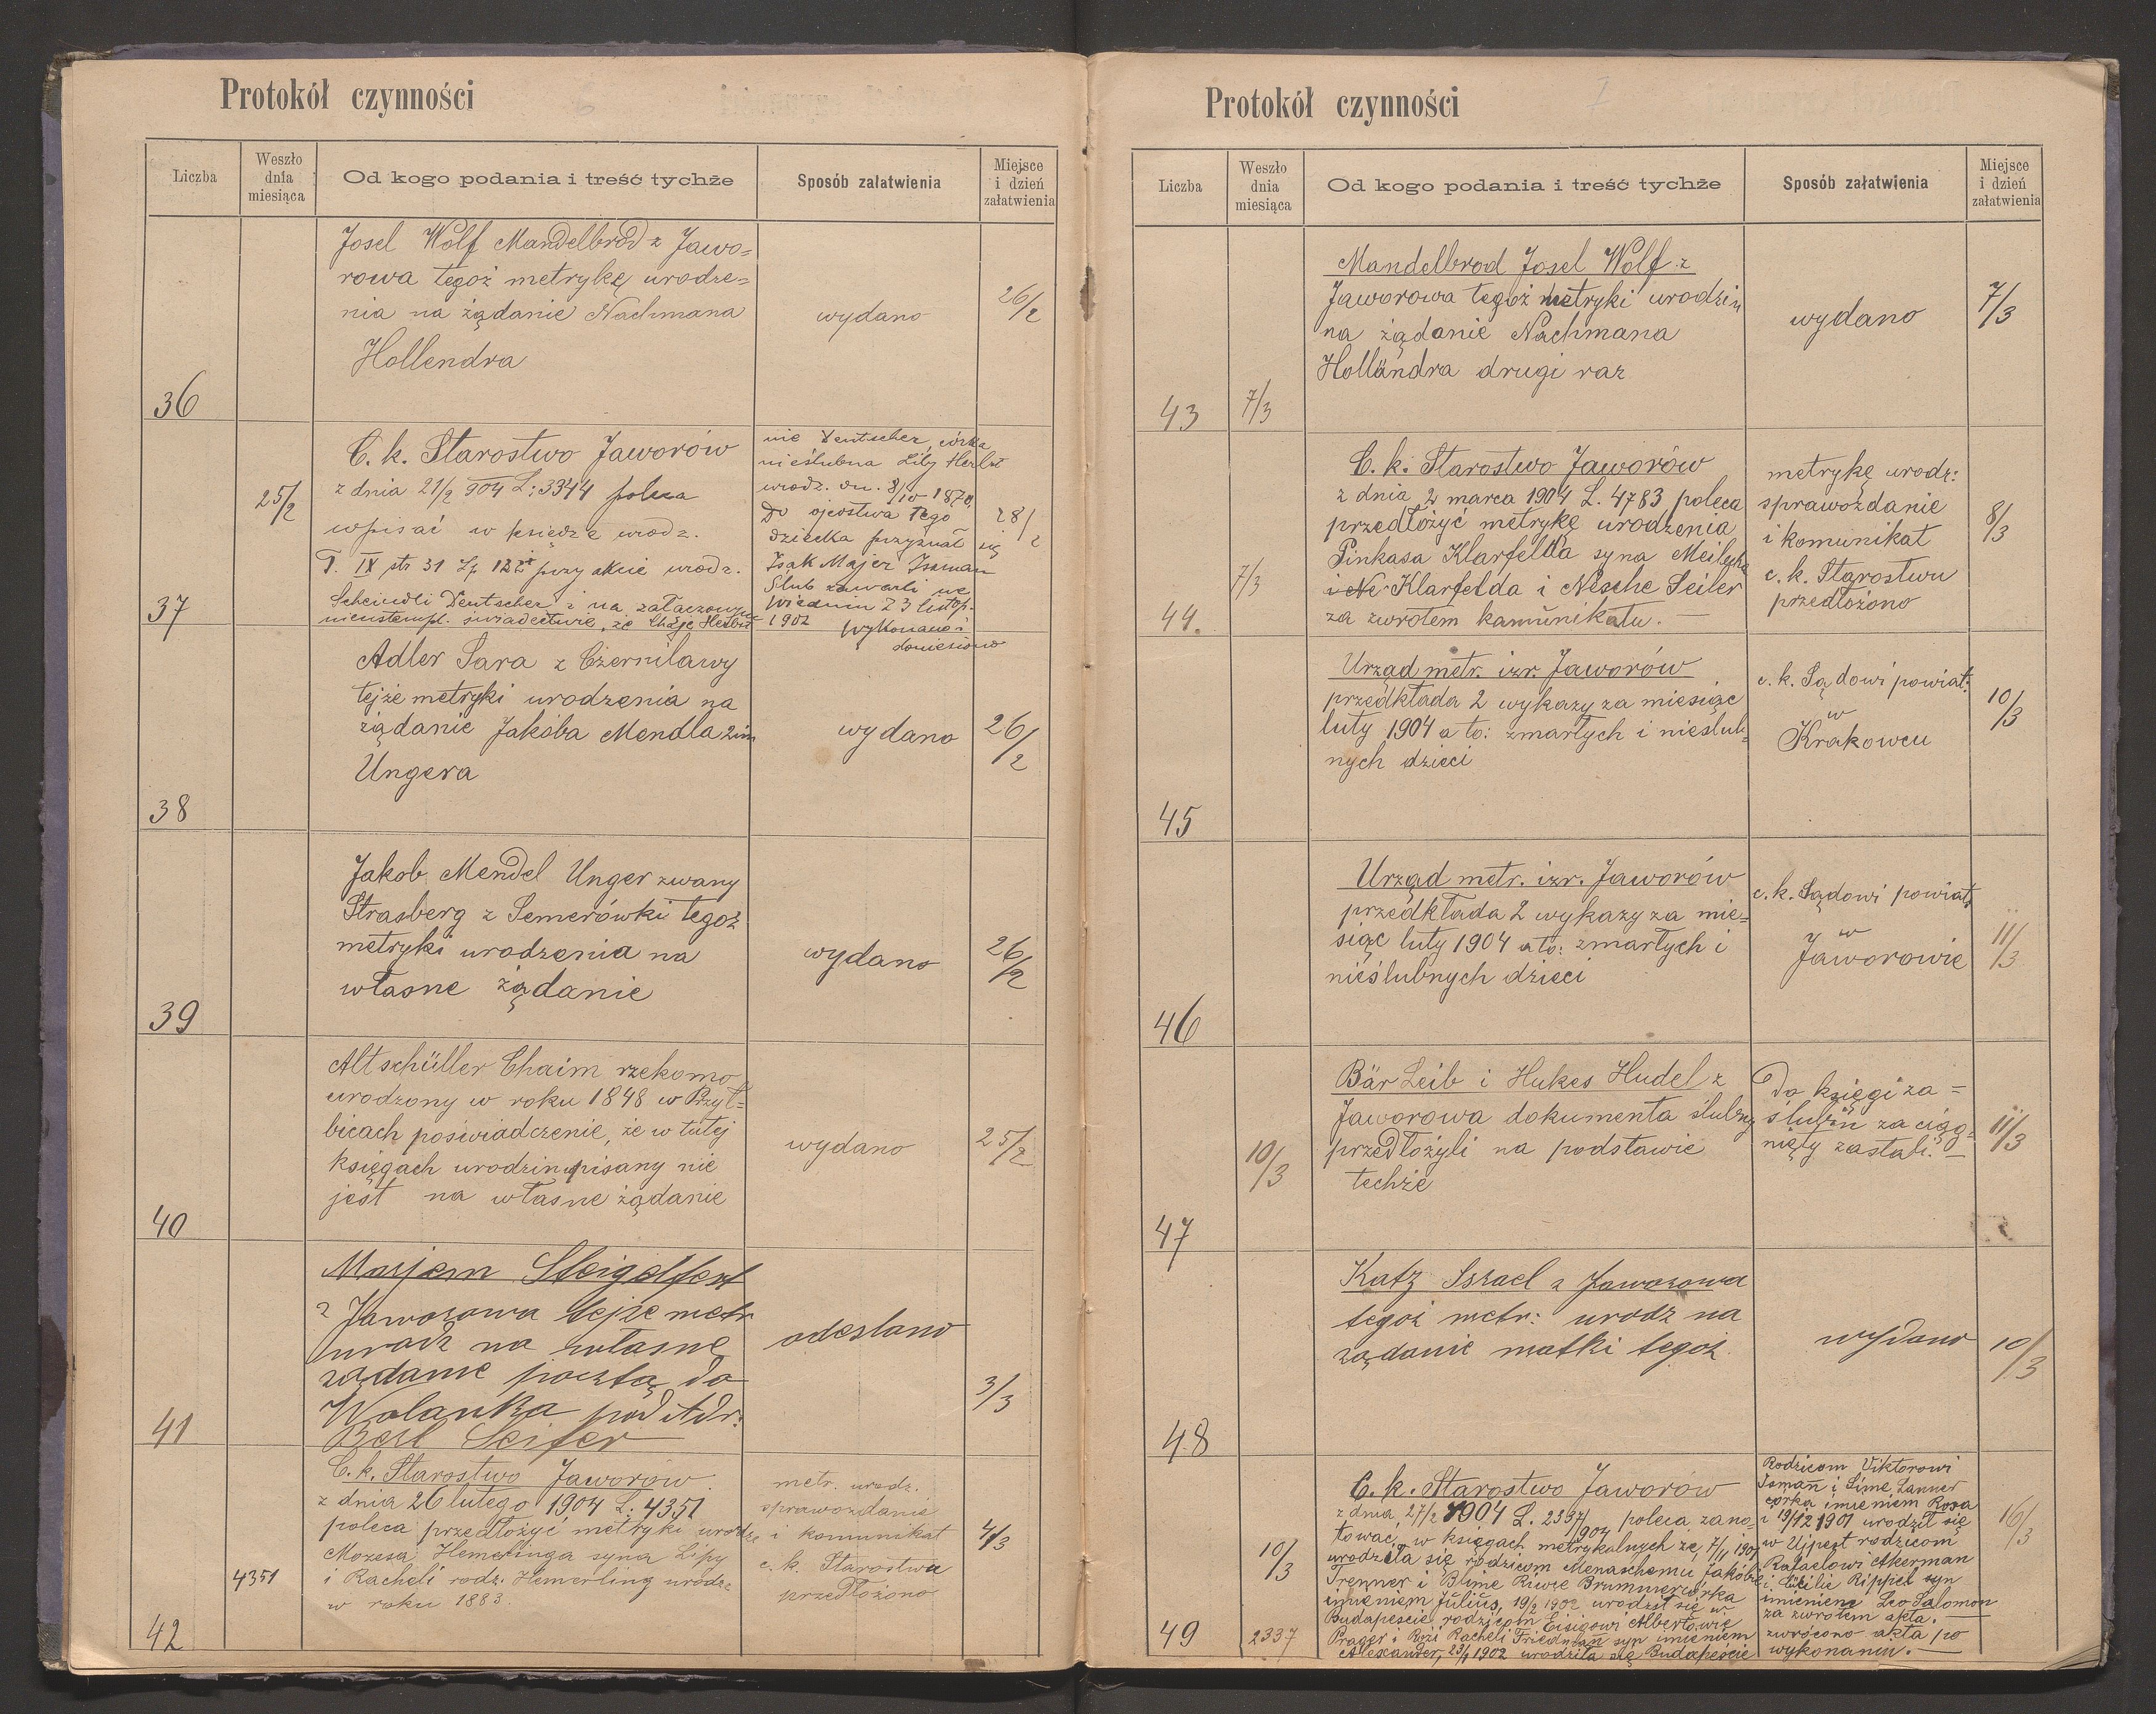 Protokół czynności
Liczba
Weszło dnia miesiąca
Od kogo podania i treść tychże
Sposób załatwienia
Miejsce i dzień załatwienia
36
Josel Wolf Mandelbrod z Jawo=
rowa tegoż metrykę urodze=
nia na żądanie Nachmana
Hollendra
wydano
26/2
37
25/2
C. k. Starostwo Jaworów
z dnia 21/2 904 L: 3344 poleca
wpisać w księdze urodz.
T. IX str 31 Lp 122 przy akcie urodz.
Scheindli Deutscher i na załączonym
niestempl. świadectwie, że Chaje Herbst
nie Deutscher, córka
nieślubna Liby Herbst
urodz. dn. 8/10 1870,
Do ojcostwa tego
dziecka przyznał się
Isak Majer Issman
Ślub zawarli we
Wiedniu 23 listop.
1902 Wykonano i
doniesiono
28/2
38
Adler Sara z Czernilawy
tejże metryki urodzenia na
żądanie Jakóba Mendla 2im
Ungera
wydano
26/2
39
Jakob Mendel Unger zwany
Strasberg z Semerówki tegoż
metryki urodzenia na
własne żądanie
wydano
26/2
40
Altschüller Chaim rzekomo
urodzony w roku 1848 w Przył=
bicach poświadczenie, że w tutej
księgach urodzin wpisany nie
jest na własne żądanie
wydano
25/2
41
Marjem Steigelfest
z Jaworowa tejże metr
urodz na własne
żądanie pocztą do
Wolanka pod Adr:
Berl Seifer
odesłano
3/3
42
4351
C. k. Starostwo Jaworów
z dnia 26 lutego 1904 L. 4351
poleca przedłożyć metryki urodz.
Mozesa Hemerlinga syna Lipy
i Racheli rodz. Hemerling urodz.
w roku 1883.
metr. urodz.
sprawozdanie
i komunikat
c. k. Starostwu
przedłożono
4/3
Protokół czynności
7
Liczba
Weszło dnia miesiąca
Od kogo podania i treść tychże
Sposób załatwienia
Miejsce i dzień załatwienia
43
7/3
Mandelbrod Josel Wolf z
Jaworowa tegoż metryki urodzin
na żądanie Nachmana
Holländra drugi raz
wydano
7/3
44.
7/3
C. k. Starostwo Jaworów
z dnia 2 marca 1904 L. 4783 poleca
przedłożyć metrykę urodzenia
Pinkasa Klarfelda syna Meilecha
i Ne Klarfelda i Nesche Seiler
za zwrotem kamunikatu.
metrykę urodz:
sprawozdanie
i komunikat
c. k. Starostwu
przedłożono
8/3
45
Urząd metr. izr. Jaworów
przedkłada 2 wykazy za miesiąc
luty 1904 a to: zmarłych i nieślub=
nych dzieci
c. k. Sądowi powiat:
w
Krakowcu
10/3
46
Urząd metr. izr. Jaworów
przedkłada 2 wykazy za mie=
siąc luty 1904 a to: zmarłych i
nieślubnych dzieci
c. k. Sądowi powiat.
w
Jaworowie
11/3
47
10/3
Bär Leib i Hukes Hudel z
Jaworowa dokumenta ślubny
przedłożyli na podstawie
techże
Do księgi za=
ślubin zaciąg=
nięty zostali.
11/3
48
Katz Israel z Jaworowa
tegoż metr: urodz na
żądanie matki tegoż
wydano
10/3
49
10/3
2337
C. k. Starostwo Jaworów
z dnia 27/2 1904 L. 2337/904 poleca zano=
tować, w księgach metrykalnych że 7/1 1901
urodziła się rodzicom Menaschemu Jakóbie
Trenner i Blime Riwze Brummer córka
imieniem Julius, 19/2 1902 urodził się w
Budapeście rodzicom Eisigowi Albertowie
Prager i Rozi Racheli Friedman syn imieniem
Alexander, 23/1 1902 urodziła się Budapeście
Rodzicom Viktorowi
Isman i Sime Lanner
córka imieniem Rosa
i 19/12 1901 urodził się
w Ujpest rodzicom
Rafaelowi Akerman
i Cäcilie Rippel syn
imieniem Leo Salomon
za zwrotem akta.
zwrócono akta po
wykonaniu.
16/3